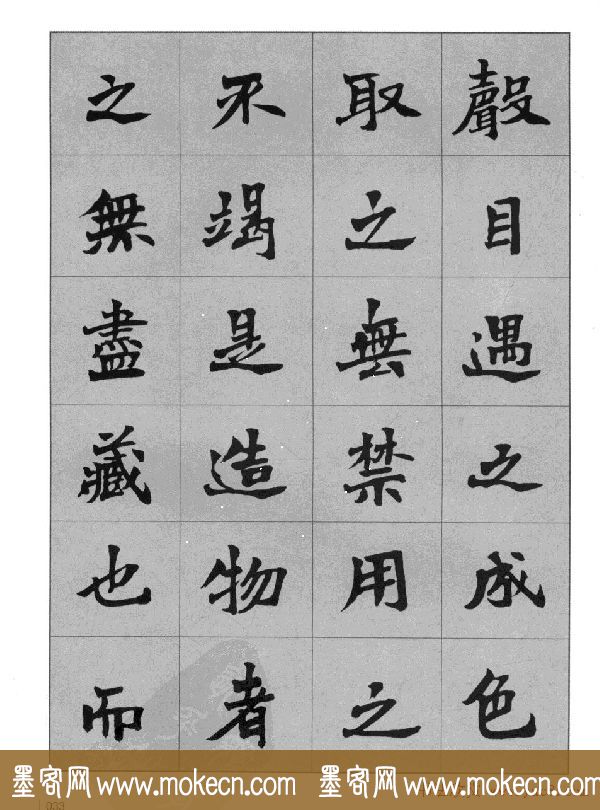 聲目遇之成色
取之無禁用之
不竭是造物者
之無盡藏也而
墨客网 www.mokecn.com 墨客网 www.mokecn.com
033